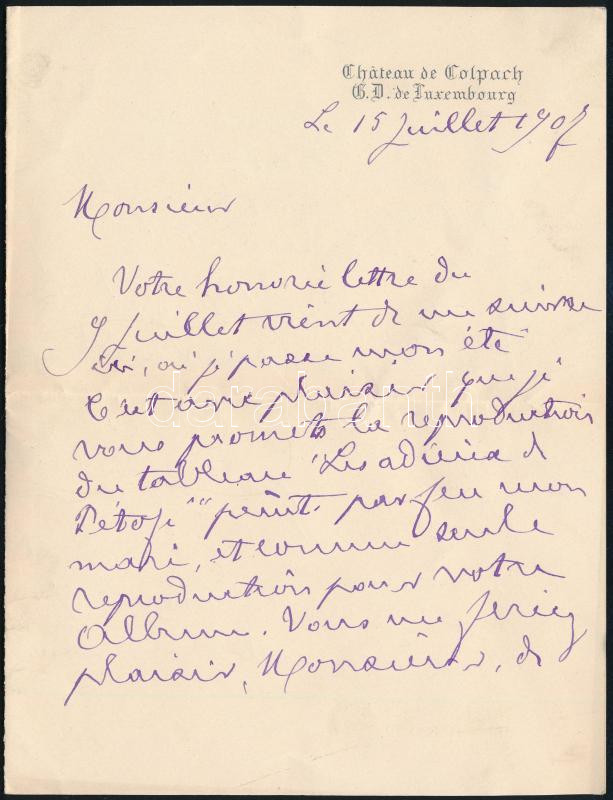 Château de Colpach
G.D. de Luxembourg
Le 15 Juillet 1907
Monsieur
Votre honorée lettre du
9 Juillet vient de me suivre
ici, où je passe mon été
C'est avec plaisir que je
vous promets la reproduction
du tableau "Les adieux de
Petofi" peint par feu mon
mari, et comme seule
reproduction pour votre
Album. Vous me feriez
plaisir, Monsieur, de
darabanth